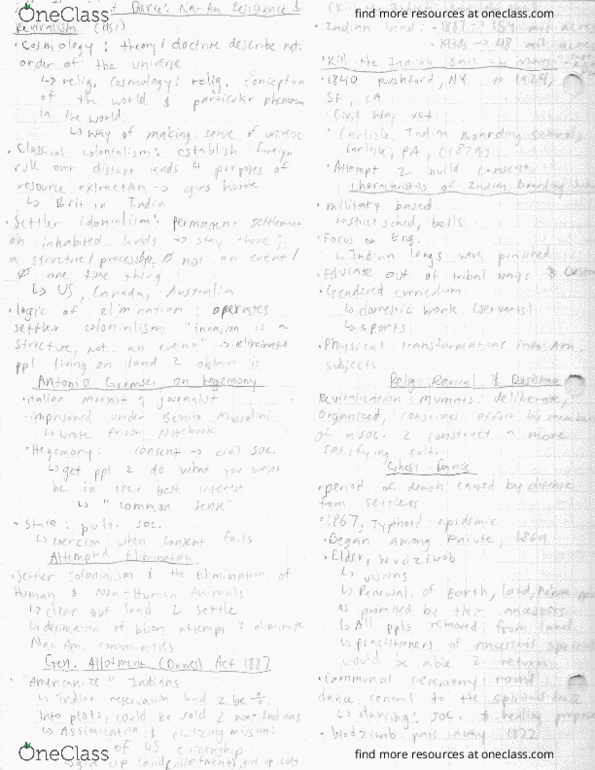 OneClass
find more resources at oneclass.com
Dance: Na-Am Resistance &
Revivalism
• Cosmology: theory/doctrine describe nat.
order of the universe
↳ relig. cosmology: relig. conception
of the world & particular phenom
in the world
↳ way of making sense of universe
• Classical colonialism: establish foreign
rule over distant lands 4 purposes of
resource extraction → goes home
↳ Brit in India
• Settler colonialism: permanent settlement
on inhabited lands → stay there;
a structure/process, Ø not an event/
Ø one time thing
↳ US, Canada, Australia
• logic of elimination: operates
settler colonialism "invasion is a
structure, not an event" → eliminate
ppl living on land 2 obtain it
Antonio Gramsci on hegemony
• Italian marxist & journalist
• imprisoned under Benito Musolini
↳ wrote Prison Notebook
• Hegemony: consent → civil soc.
↳ get ppl 2 do what you want
be in their best interest
↳ "common sense"
• State: polit. soc.
↳ coercion when consent fails
Attempted Elimination
• Settler Colonialism & the Elimination of
Human & Non-Human Animals
↳ clear out land 2 settle
↳ decimation of bison attempt 2 eliminate
Na-Am. communities
Gen. Allotment (Dawes) Act 1887
• "Americanize" Indians
↳ Indian reservation land 2 be
into plots, could be sold 2 non-Indians
↳ Assimilation & civilizing mission:
of US citizenship
↳ give up land (allotment), give up cult
• Indian land: - 1887 →
- 1930s → 48 mil acres
• Kill the Indian save the man:
• 1840 Rushford, NY to 1924,
SF, CA
• Civil War vet
• Carlisle Indian Boarding School,
Carlisle, PA, (1879)
• Attempt 2 build consent
Characteristics of Indian Boarding
• military based
↳ strict sched, bells
• Focus on Eng.
↳ Indian langs were punished
• Educate out of tribal ways &
• Gendered curriculum
↳ domestic work (servants)
↳ sports
• Physical transformations into Am.
subjects
Relig. Revival & Resistance
Revitalization mvmnts: deliberate,
organized, conscious effort by members
of a soc. 2 construct a more
satisfying cult.
Ghost Dance
• period of death caused by disease
from settlers
• 1867, Typhoid epidemic
• Began among Paiute, 1869
• Elder, Wodziwob
↳ visions
↳ Renewal of Earth, land,
as promised by their ancestors
↳ All ppls removed from land
↳ practitioners of ancestral
would be able 2 return
• Communal ceremony: round
dance central to the spiritual
↳ dancing: soc. & healing purpose
• Wodziwob pass away 1872
OneClass
find more resources at oneclass.com